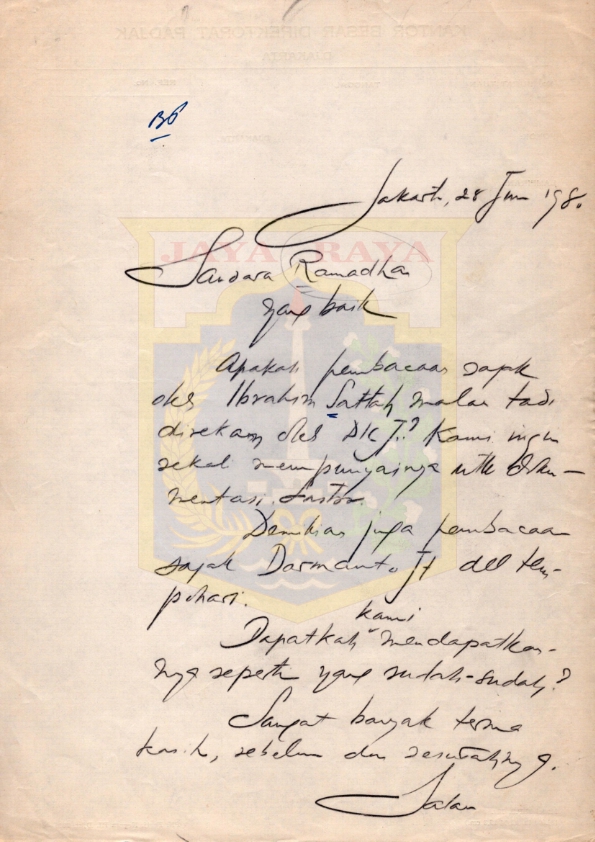 KANTOR BESAR DIREKTORAT PADJAK
DJAKARTA
Jakarta, 28 Juni 198.
JAYA RAYA
Saudara Ramadhan
yang baik
Apakah pembacaan sajak
oleh Ibrahim Sattah malam tadi
direkam oleh DKJ? Kami ingin
sekali mempunyainya utk doku-
mentasi sastra.
Demikian juga pembacaan
sajak Darmanto Jt dll tem-
pohari.
kami
Dapatkah mendapatkan-
nya seperti yang sudah-sudah?
Sangat banyak terima
kasih, sebelum dan sesudahnya.
Salam